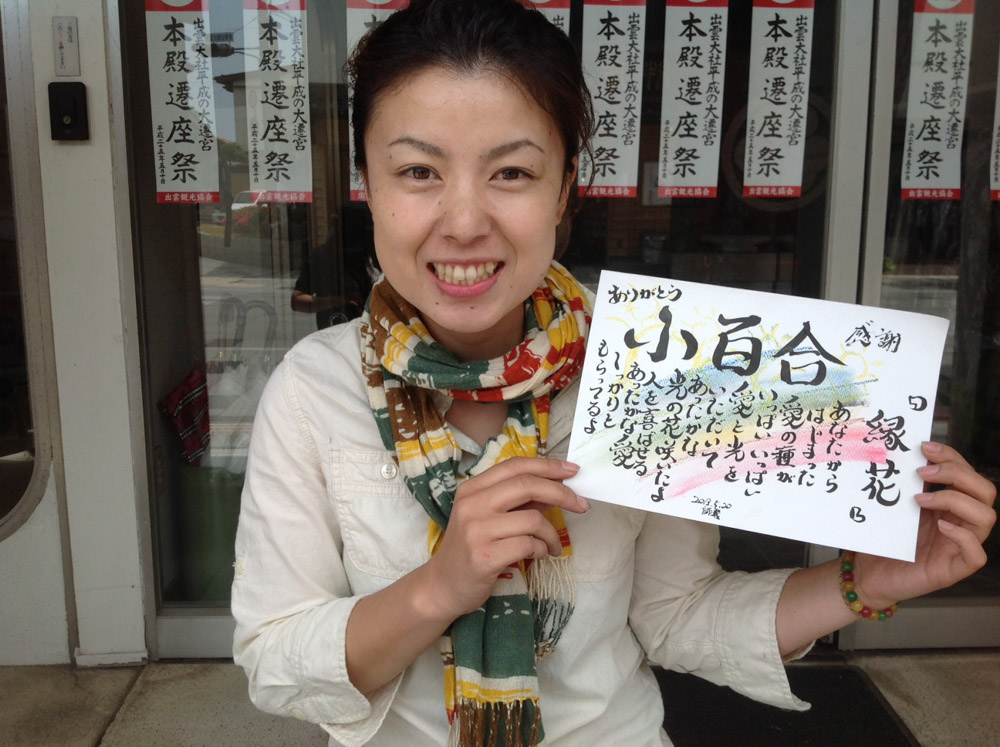 出雲大社平成の大遷宮
本殿遷座祭
平成二十五年五月十日
出雲観光協会
出雲大社平成の大遷宮
本殿遷座祭
平成二十五年五月十日
出雲観光協会
出雲大社平成の大遷宮
本殿遷座祭
平成二十五年五月十日
出雲観光協会
出雲大社平成の大遷宮
本殿遷座祭
平成二十五年五月十日
出雲観光協会
出雲大社平成の大遷宮
本殿遷座祭
平成二十五年五月十日
出雲観光協会
出雲大社平成の大遷宮
本殿遷座祭
平成二十五年五月十日
出雲観光協会
ありがとう
小百合
感謝
「縁花」
あなたから
はじまった
愛の種が
いっぱいいっぱい
愛と光を
いただいて
あったかな
光の花咲いたよ
人を喜ばせる
あったかな愛
しっかりと
もらってるよ
2013.5.20